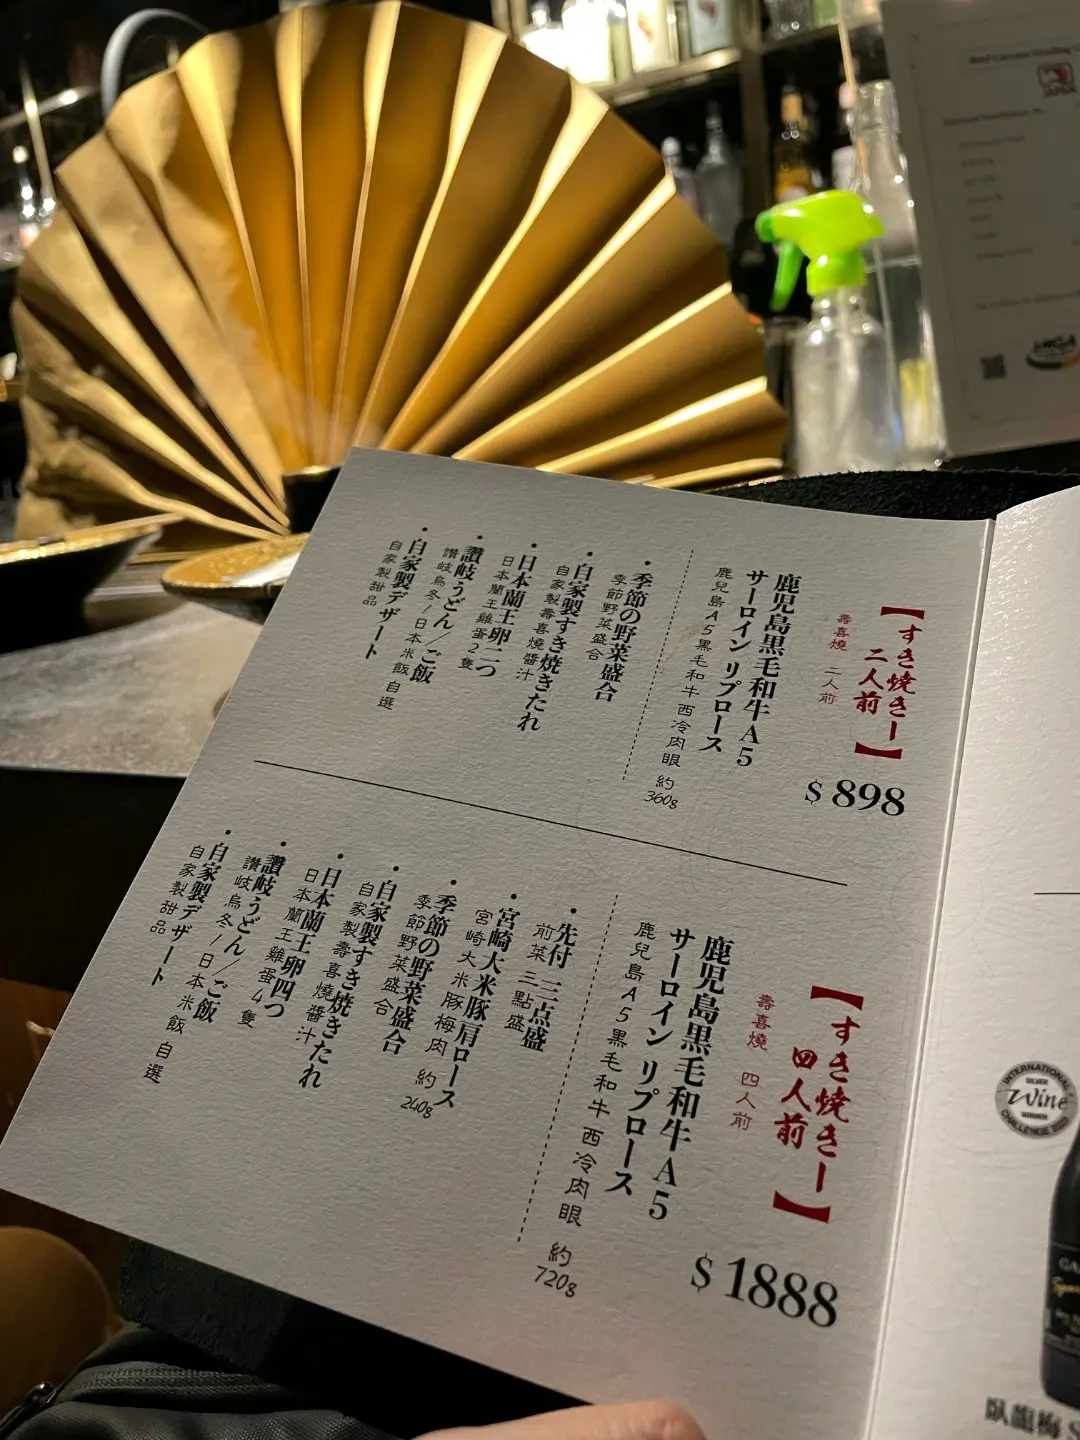 【すき焼きー
二人前】
壽喜燒 二人前
$ 898
鹿児島黒毛和牛A5
サーロイン リブロース
鹿兒島A5黑毛和牛西冷肉眼 約360g
・季節の野菜盛合
季節野菜盛合
・自家製すき焼きたれ
自家製壽喜燒醬汁
・日本蘭王卵二つ
日本蘭王雞蛋2隻
・讃岐うどん／ご飯
讃岐烏冬/日本米飯 自選
・自家製デザート
自家製甜品
【すき焼きー
四人前】
壽喜燒 四人前
$ 1888
鹿児島黒毛和牛A5
サーロイン リブロース
鹿兒島A5黑毛和牛西冷肉眼 約720g
・先付 三点盛
前菜三點盛
・宮崎大米豚肩ロース
宮崎大米豚梅肉 約240g
・季節の野菜盛合
季節野菜盛合
・自家製すき焼きたれ
自家製壽喜燒醬汁
・日本蘭王卵四つ
日本蘭王雞蛋4隻
・讃岐うどん／ご飯
讃岐烏冬/日本米飯 自選
・自家製デザート
自家製甜品
INTERNATIONAL
SILVER
Wine
WINNER
CHALLENGE
臥龍梅